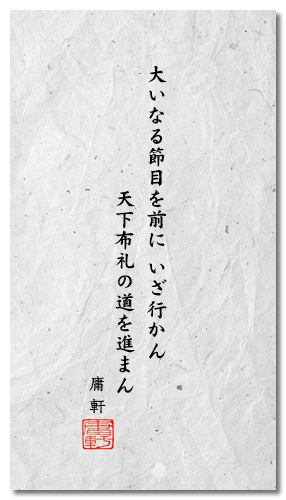 大いなる節目を前に いざ行かん
天下布礼の道を進まん
庸軒
庸軒